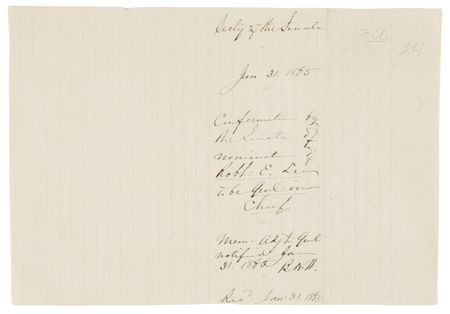 Secty of the Senate
File
Jan. 31. 1865
Confirmation by
the Senate of
nomination of
Robt. E. Lee
to be Genl in
Chief
Mem: Adjt. Genl
notified Jan
31. 1865 B.N.H.
Recd. Jan. 31. 1865